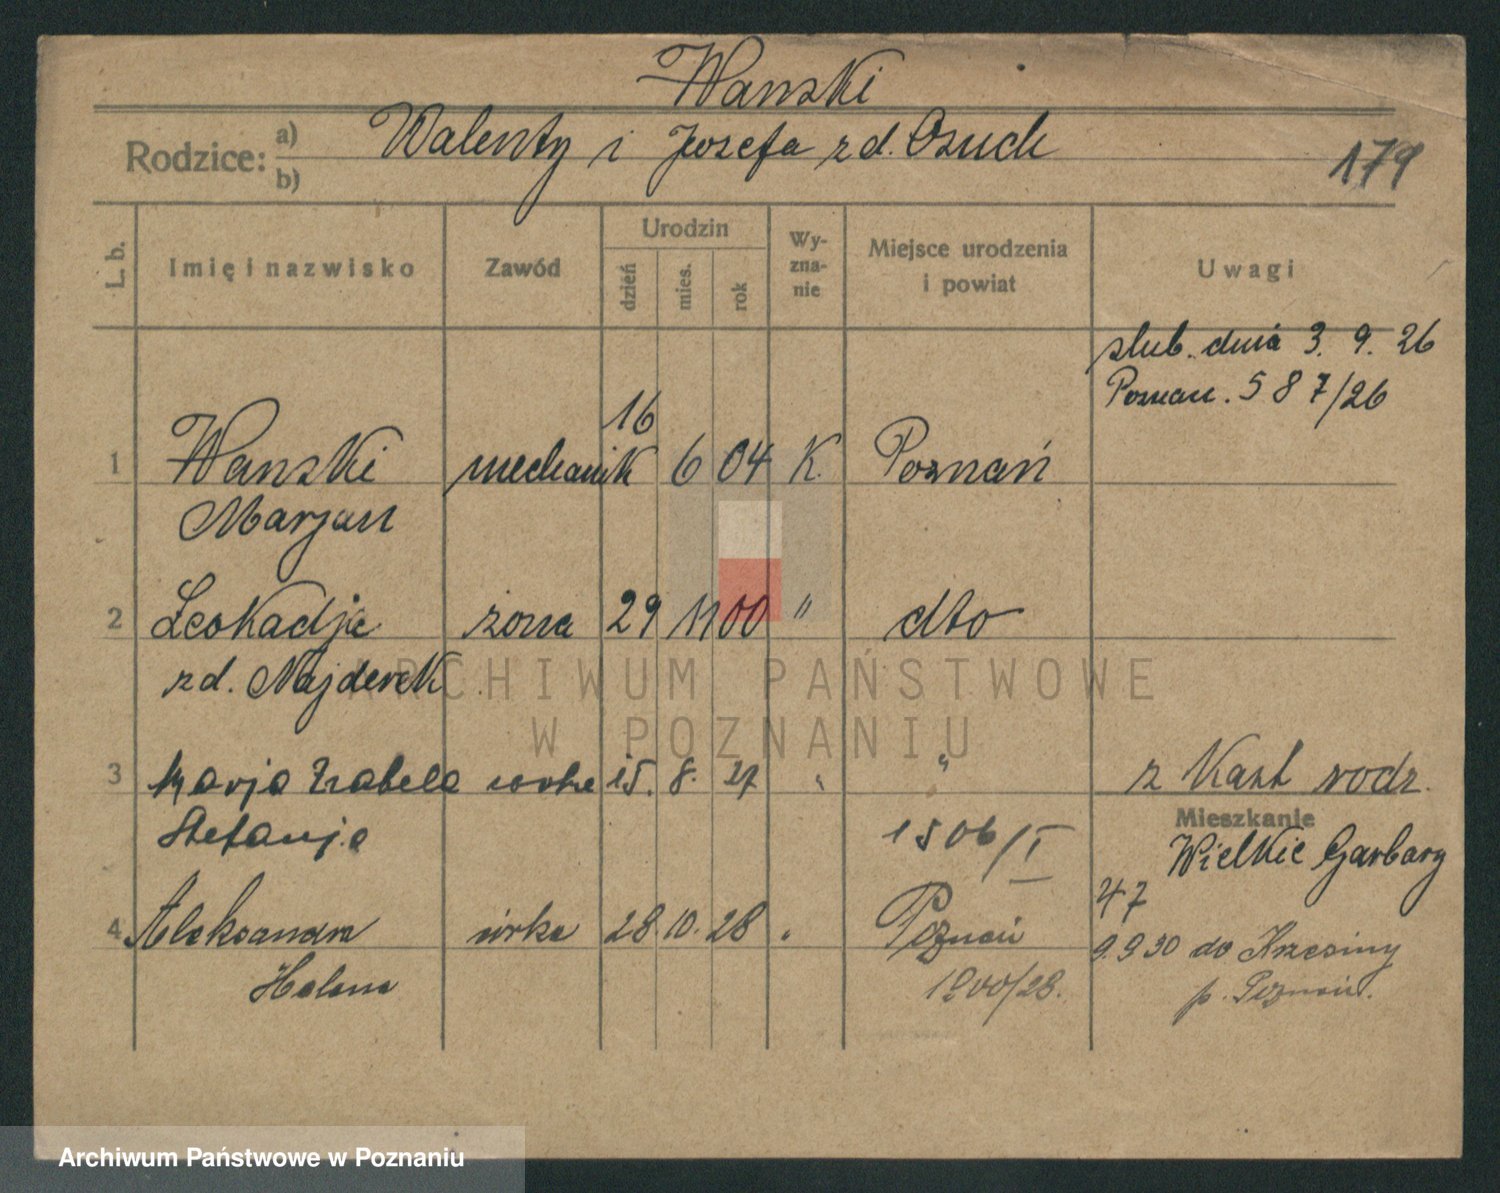 Wanski
Rodzice: a) b) Walenty i Jozefa zd. Osuch
179
L. b. Imię i nazwisko Zawód Urodzin dzień mies. rok Wyznanie Miejsce urodzenia i powiat Uwagi
slub. dnia 3. 9. 26
Poznań. 587/26
1 Wanski mechanik 16 6 04 K. Poznań
Marjan
2 Leokadja żona 29 11 00 " dto
zd. Najderek
ARCHIWUM PAŃSTWOWE
W POZNANIU
3 Marja Izabela corka 15. 8. 27 " " z Kart rodz.
Stefanja 1506/I
Mieszkanie
Wielkie Garbary
47
4 Aleksandra córka 28. 10. 28 " Poznań
Helena 1800/28.
9.9 30 do Krzesiny
p. Poznań.
Archiwum Państwowe w Poznaniu